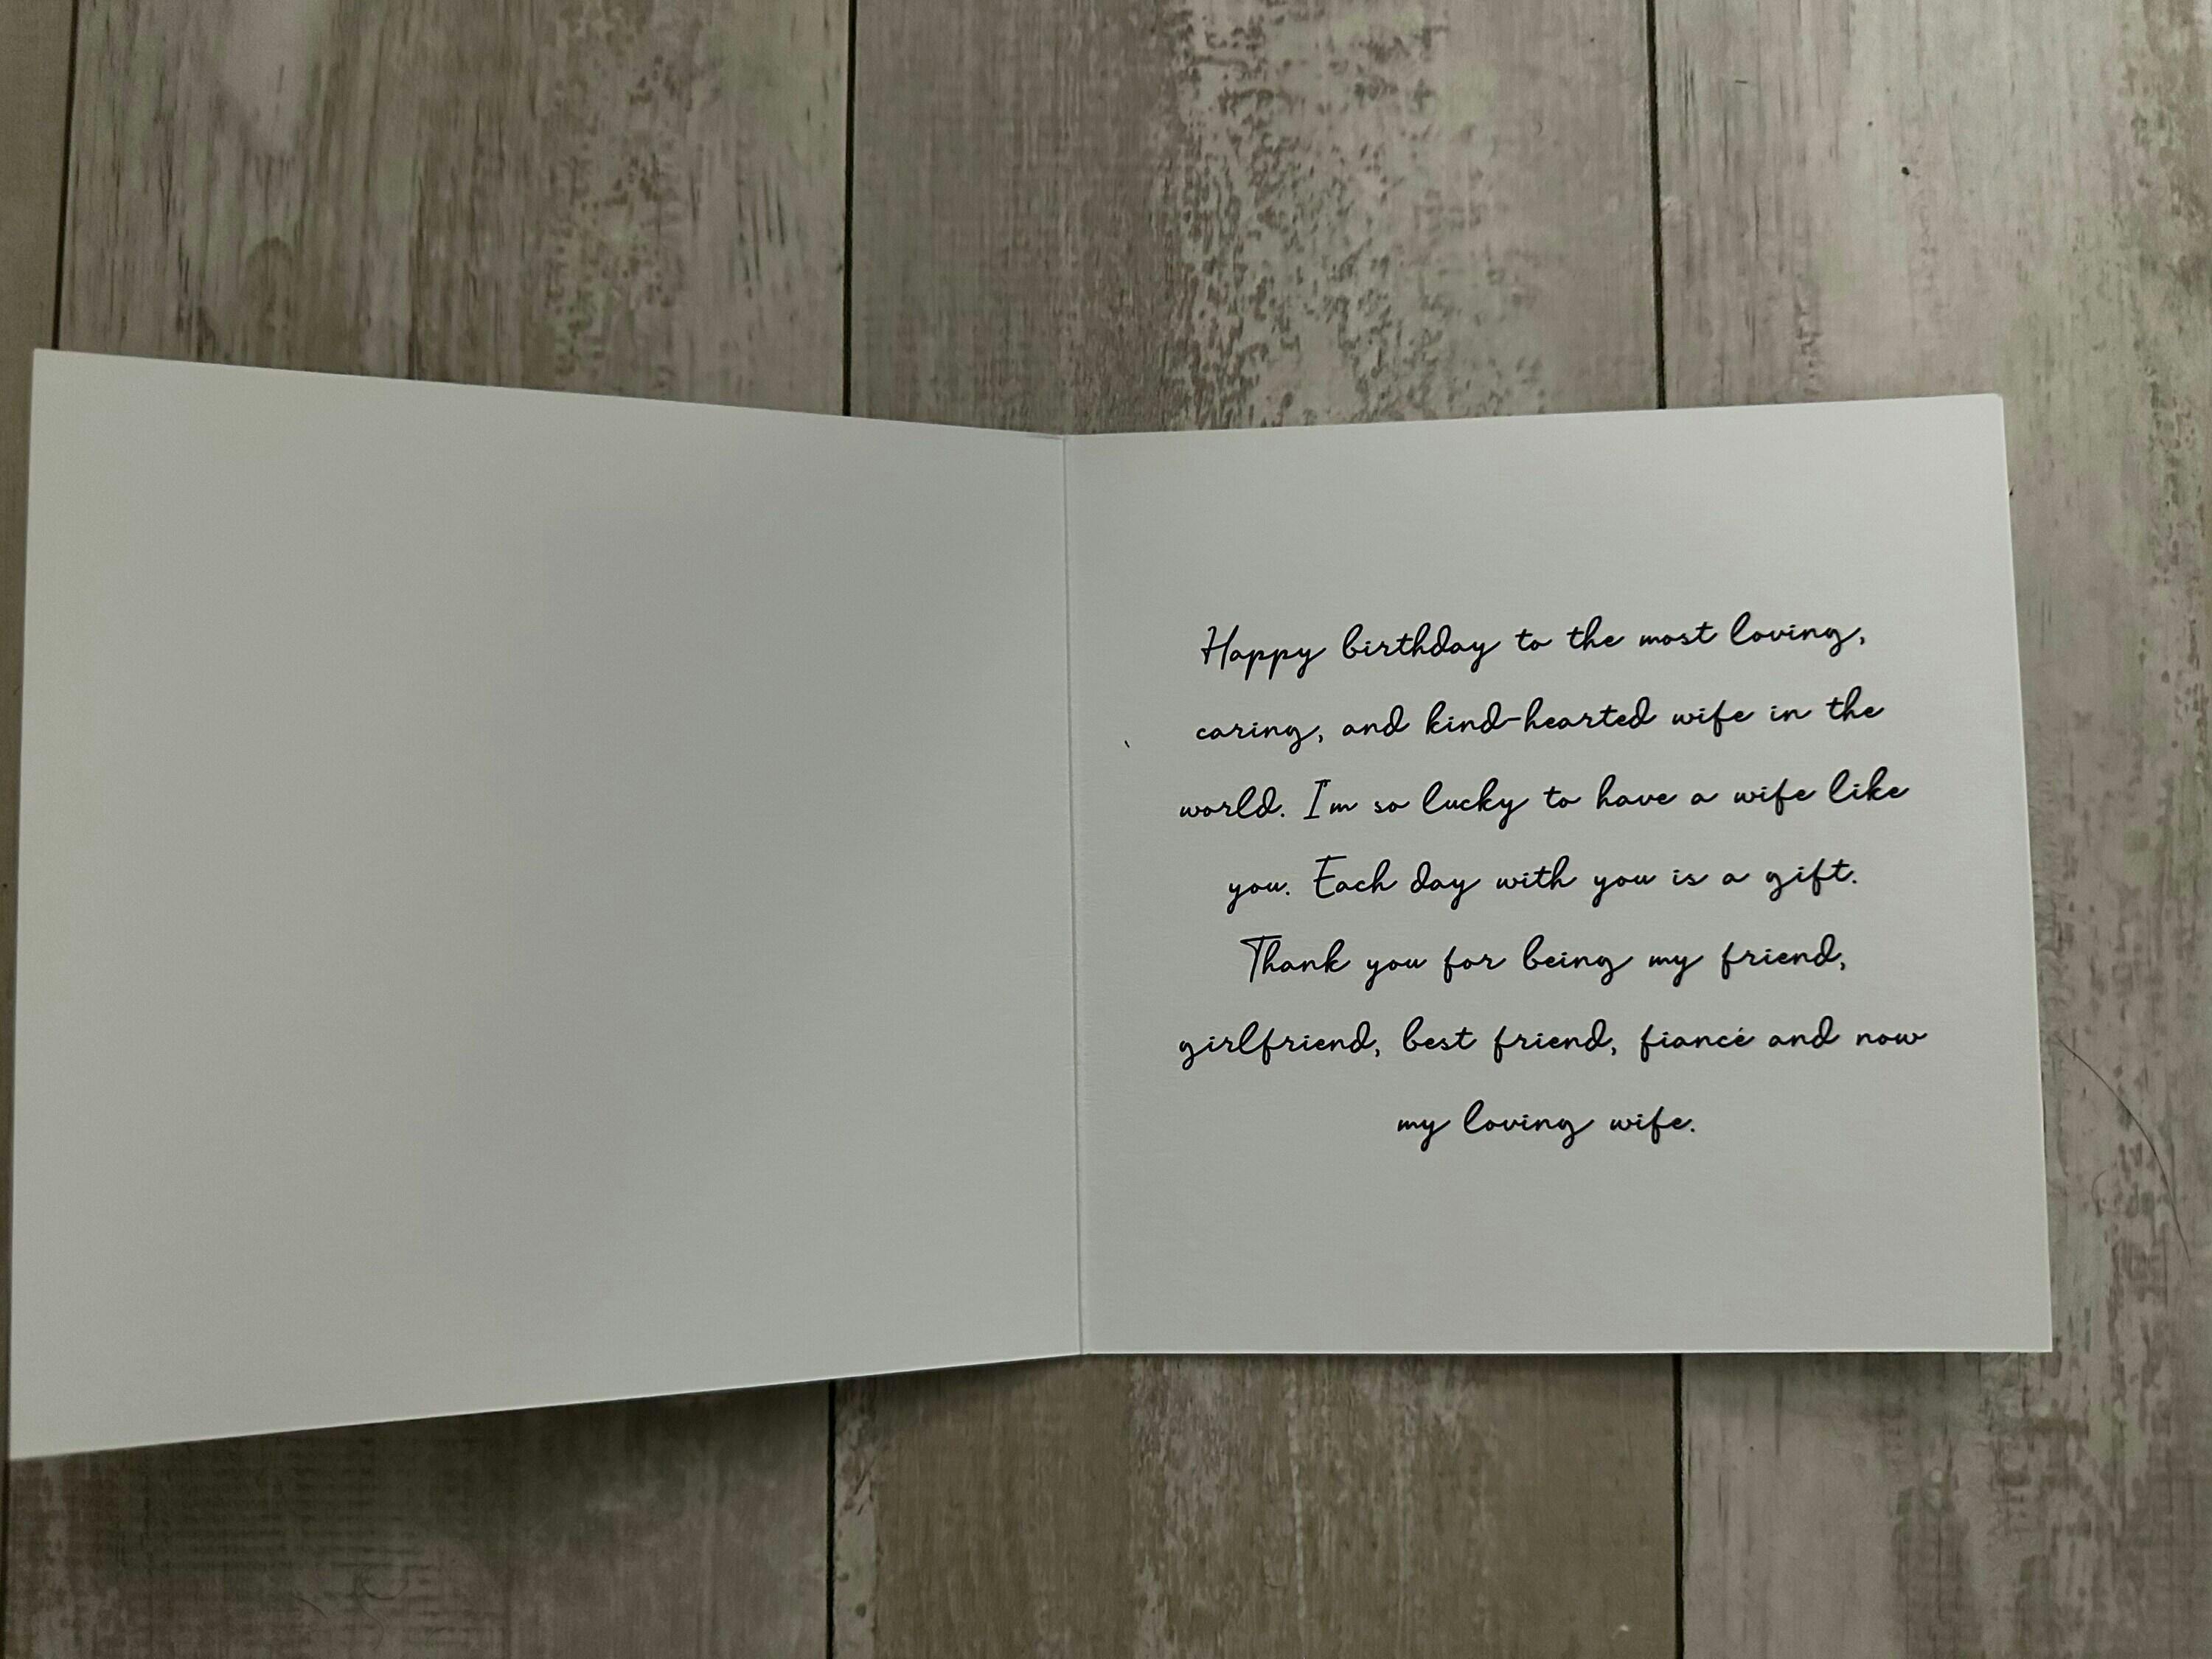 Happy birthday to the most loving,
caring, and kind-hearted wife in the
world. I'm so lucky to have a wife like
you. Each day with you is a gift.
Thank you for being my friend,
girlfriend, best friend, fiancé and now
my loving wife.